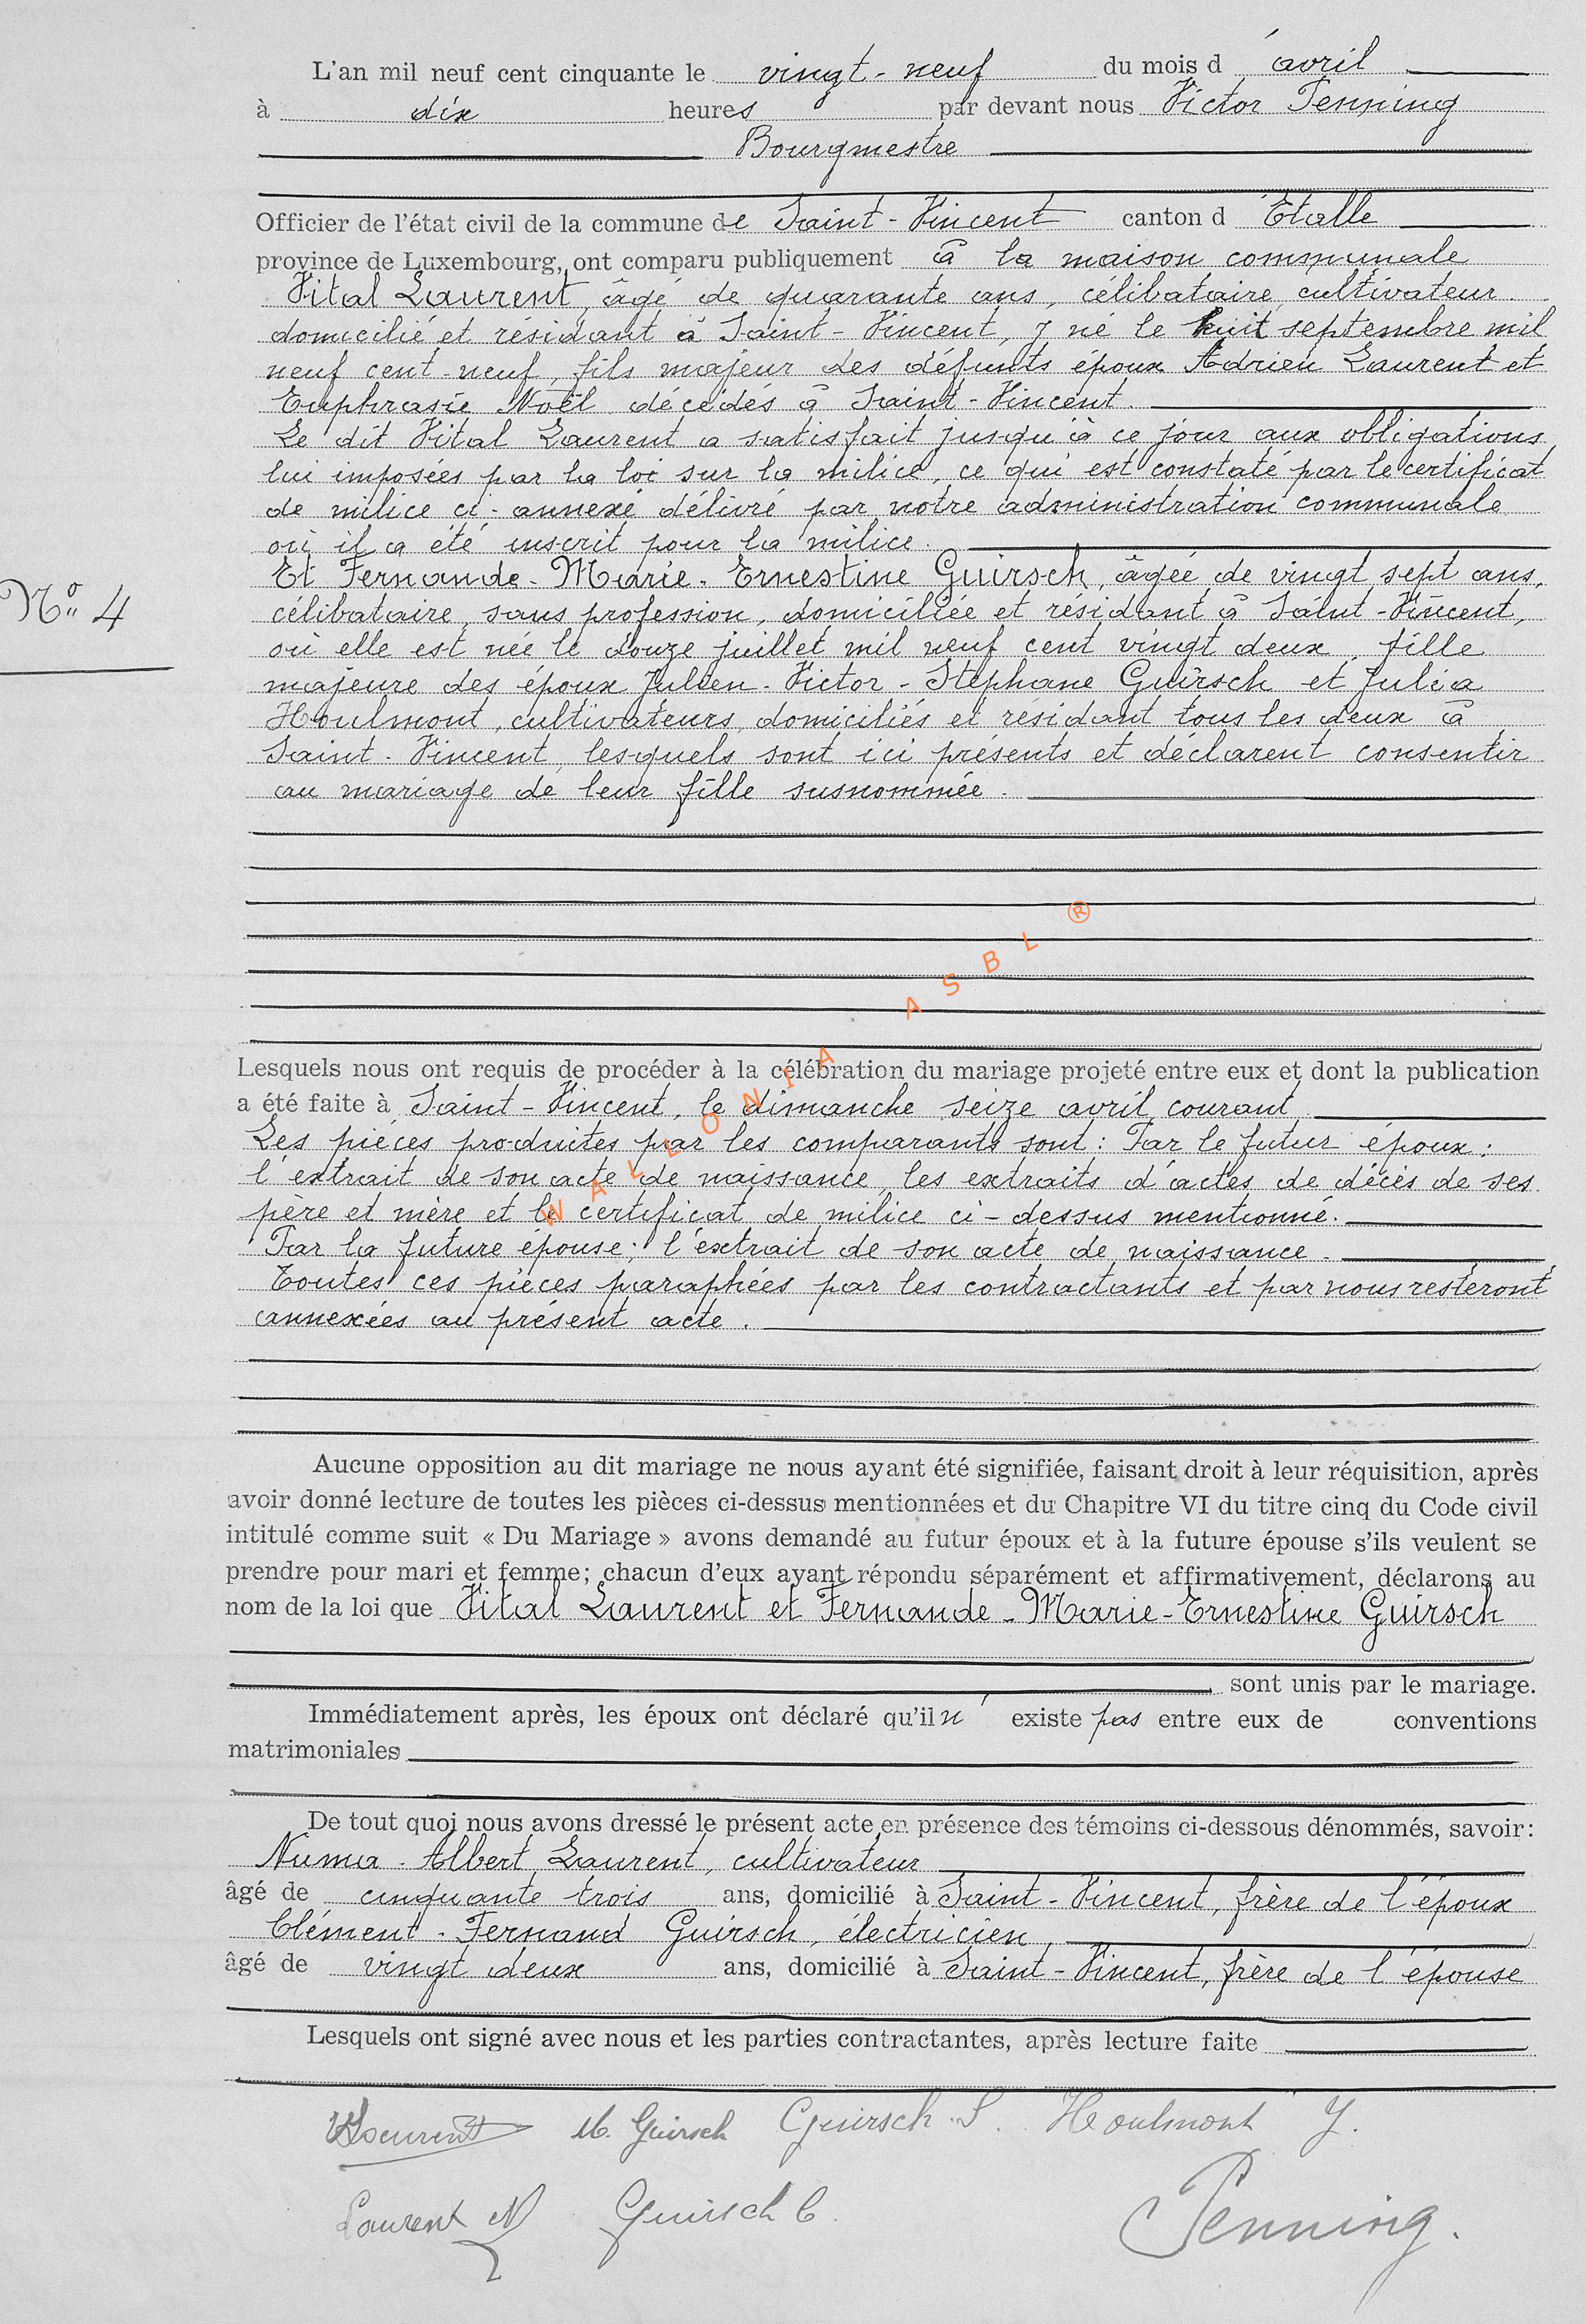 L'an mil neuf cent cinquante le vingt-neuf du mois d'avril
à dix heures par devant nous Victor Penning
Bourgmestre
Officier de l'état civil de la commune de Saint-Vincent canton d'Etalle
province de Luxembourg, ont comparu publiquement à la maison communale
Vital Laurent, âgé de quarante ans, célibataire, cultivateur.
domicilié et résidant à Saint-Vincent, y né le huit septembre mil
neuf cent-neuf, fils majeur des défunts époux Adrien Laurent et
Euphrasie Noël décédés à Saint-Vincent.
Le dit Vital Laurent a satisfait jusqu'à ce jour aux obligations
lui imposées par la loi sur la milice, ce qui est constaté par le certificat
de milice ci-annexé délivré par notre administration communale
où il a été inscrit pour la milice.
Et Fernande-Marie-Ernestine Guirsch, âgée de vingt sept ans,
N° 4
célibataire, sans profession, domiciliée et résidant à Saint-Vincent,
où elle est née le douze juillet mil neuf cent vingt deux, fille
majeure des époux Julien-Victor-Stéphane Guirsch et Julia
Houlmont, cultivateurs, domiciliés et résidant tous les deux à
Saint-Vincent, lesquels sont ici présents et déclarent consentir
au mariage de leur fille susnommée.
Lesquels nous ont requis de procéder à la célébration du mariage projeté entre eux et dont la publication
a été faite à Saint-Vincent, le dimanche seize avril courant
Les pièces produites par les comparants sont: Par le futur époux:
l'extrait de son acte de naissance, les extraits d'actes de décès de ses
père et mère et le certificat de milice ci-dessus mentionné.
Par la future épouse: l'extrait de son acte de naissance.
Toutes ces pièces paraphées par les contractants et par nous resteront
annexées au présent acte.
WALLONIA ASBL ®
Aucune opposition au dit mariage ne nous ayant été signifiée, faisant droit à leur réquisition, après
avoir donné lecture de toutes les pièces ci-dessus mentionnées et du Chapitre VI du titre cinq du Code civil
intitulé comme suit « Du Mariage » avons demandé au futur époux et à la future épouse s'ils veulent se
prendre pour mari et femme; chacun d'eux ayant répondu séparément et affirmativement, déclarons au
nom de la loi que Vital Laurent et Fernande-Marie-Ernestine Guirsch
sont unis par le mariage.
Immédiatement après, les époux ont déclaré qu'il n'existe pas entre eux de conventions
matrimoniales
De tout quoi nous avons dressé le présent acte en présence des témoins ci-dessous dénommés, savoir:
Numa-Albert Laurent, cultivateur
âgé de cinquante trois ans, domicilié à Saint-Vincent, frère de l'époux
Clément-Fernand Guirsch, électricien,
âgé de vingt deux ans, domicilié à Saint-Vincent, frère de l'épouse
Lesquels ont signé avec nous et les parties contractantes, après lecture faite
V Laurent M. Guirsch Guirsch S. Houlmont J.
Laurent N Guirsch C. Penning.